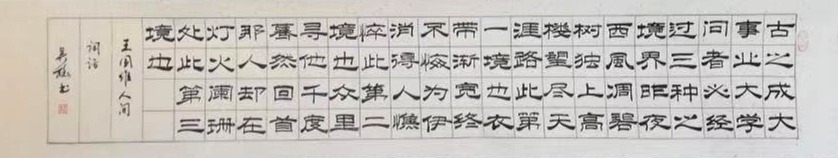 古之成大
事业大学
问者必经
过三种之
境界昨夜
西風凋碧
树独上高
楼望尽天
涯路此第
一境也衣
带渐宽终
不悔为伊
消得人憔
悴此第二
境也众里
寻他千度
蓦然回首
那人却在
灯火阑珊
处此第三
境也
王国维人间
词话